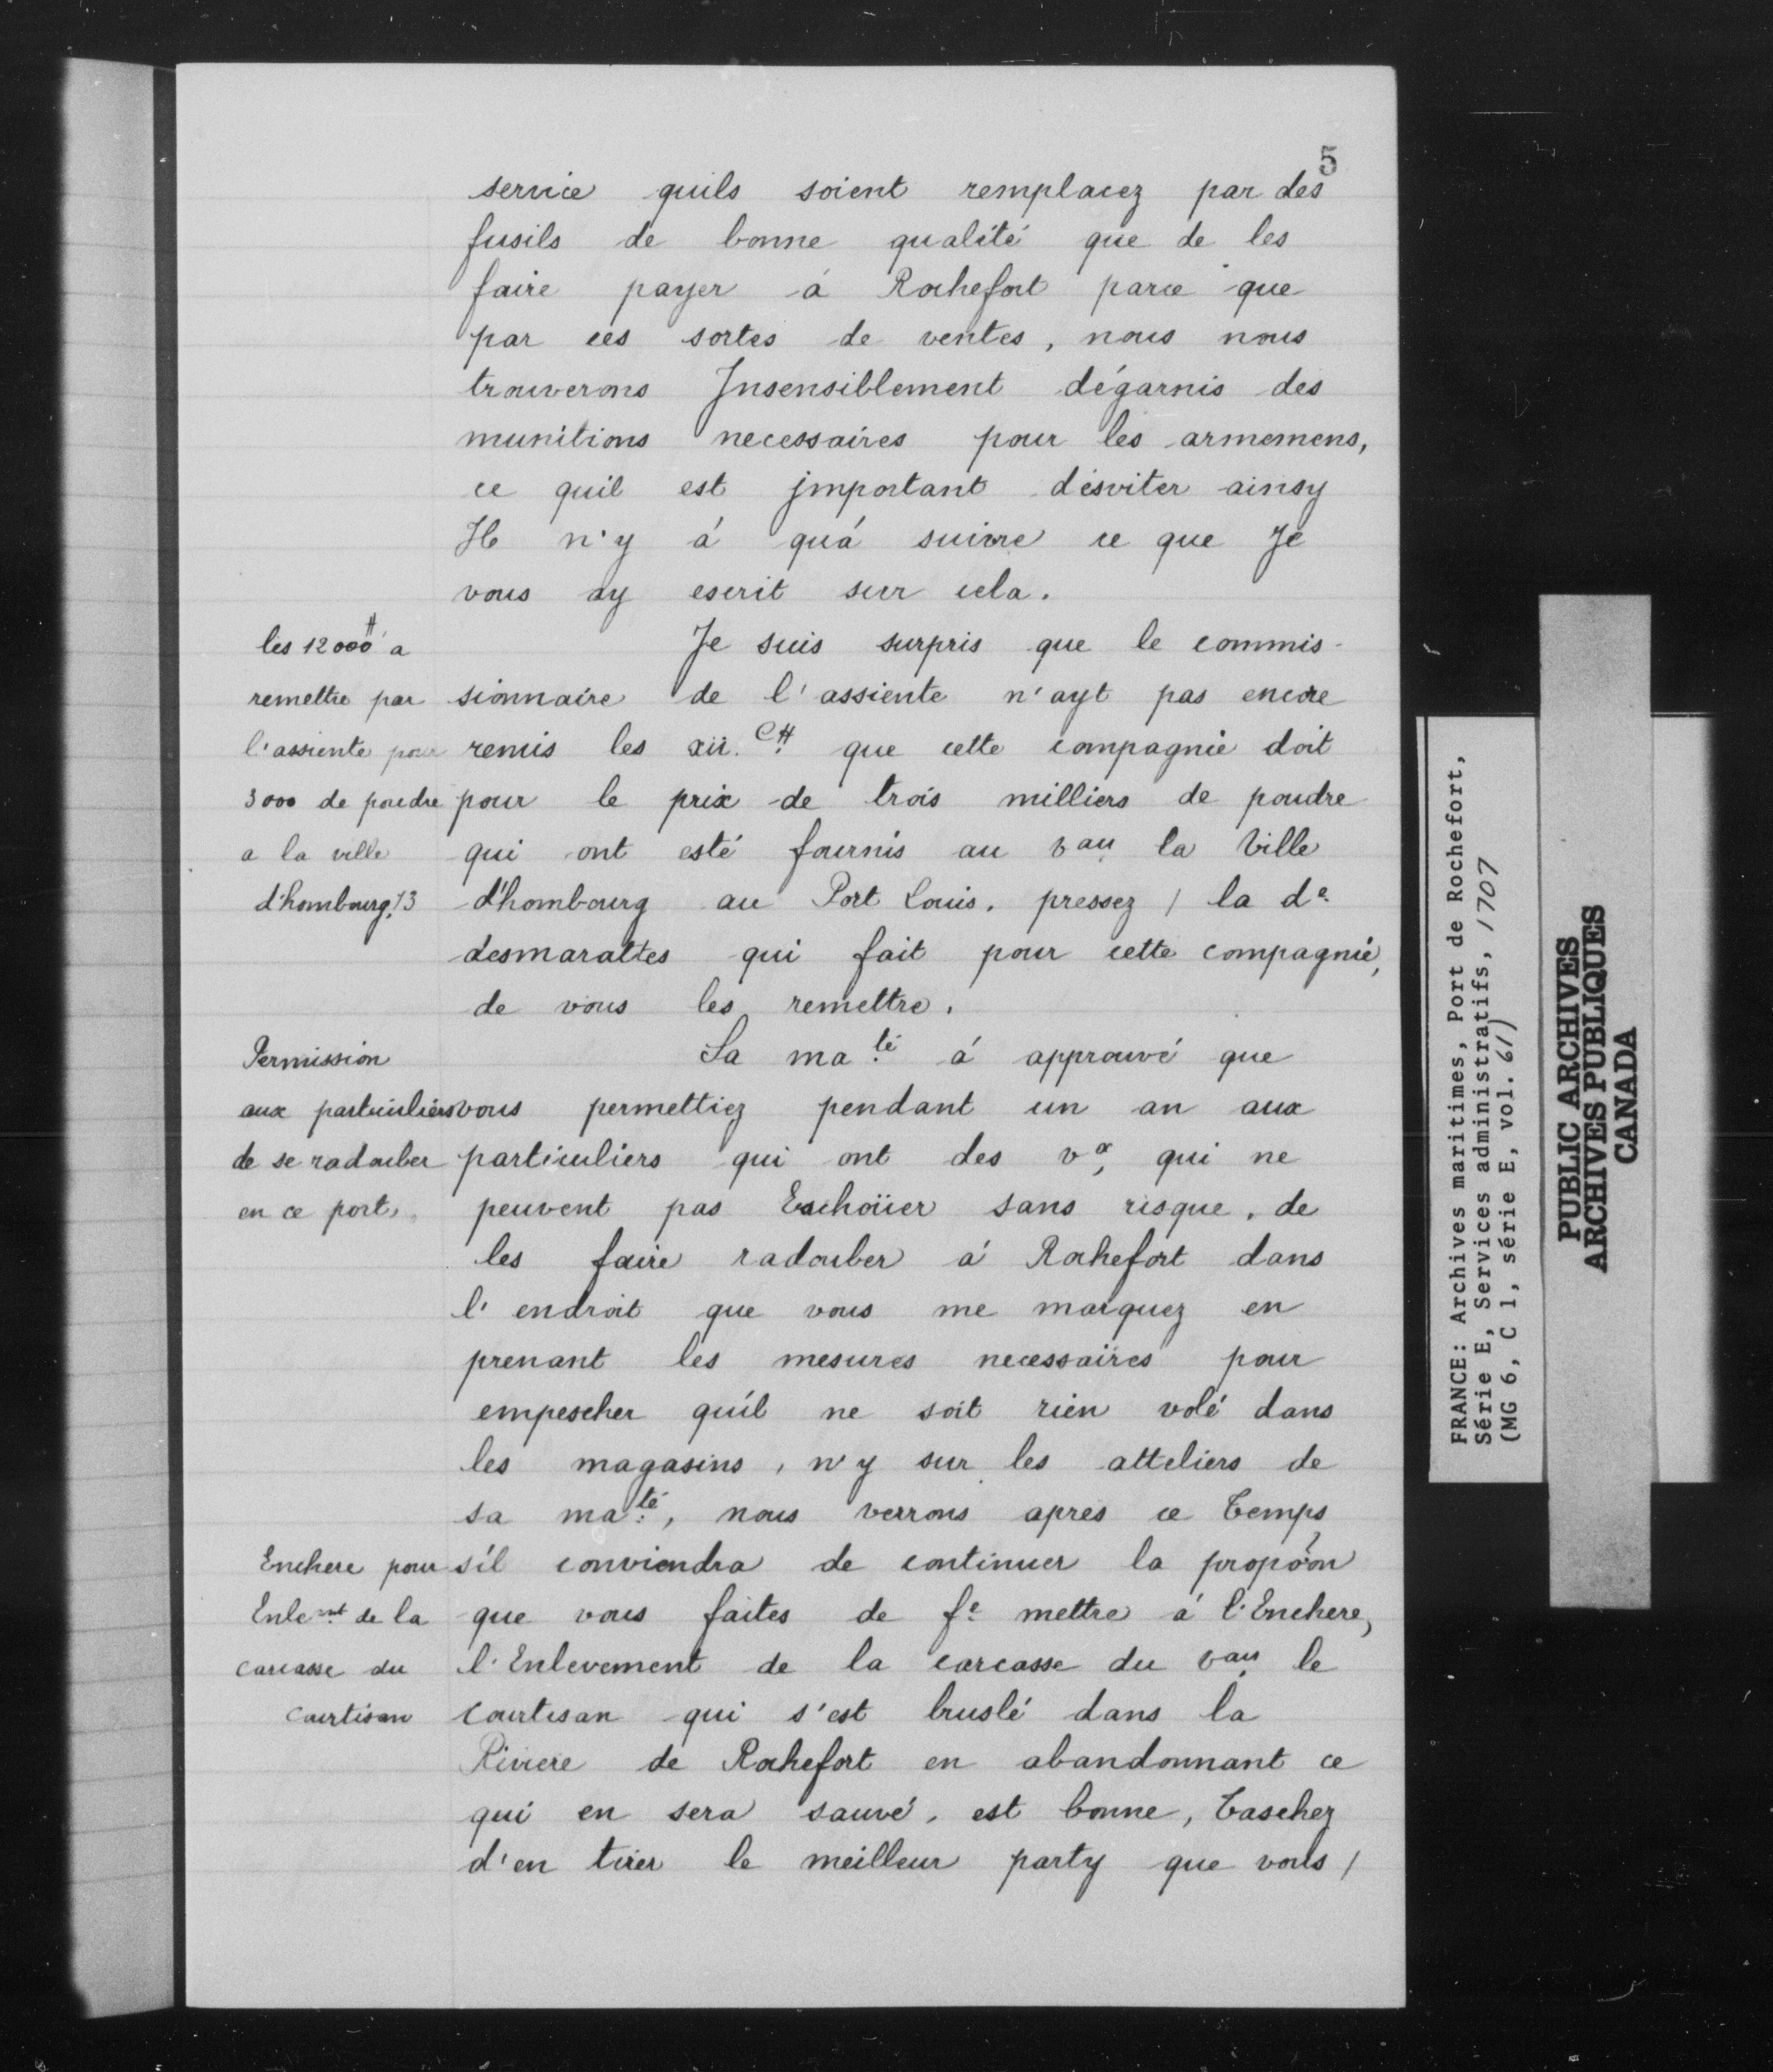 5
service quils soient remplacez par des
fusils de bonne qualité que de les
faire payer à Rochefort parce que
par ces sortes de ventes, nous nous
trouverons Insensiblement dégarnis des
munitions necessaires pour les armemens,
ce quil est jmportant d'esviter ainsy
Il n'y à quà suivre ce que Je
vous ay escrit sur cela.
les 12000# a
remettre par
l'assiente pour
3000 de poudre
a la ville
d'hombourg. /3
Je suis surpris que le commis-
sionnaire de l'assiente n'ayt pas encore
remis les xii.C# que cette compagnie doit
pour le prix de trois milliers de poudre
qui ont esté fournis au vau la Ville
d'hombourg au Port Louis. pressez / la de
desmarattes qui fait pour cette compagnie,
de vous les remettre.
Permission
aux particuliers
de se radouber
en ce port.
Sa ma.té à approuvé que
vous permettiez pendant un an aux
particuliers qui ont des vx, qui ne
peuvent pas Eschoüer sans risque, de
les faire radouber à Rochefort dans
l'endroit que vous me marquez en
prenant les mesures necessaires pour
empescher qu'il ne soit rien volé dans
les magasins, n'y sur les atteliers de
sa ma.té, nous verrons aprés ce Temps
Enchere pour
Enle.mt de la
carcasse du
courtisan
s'il conviendra de continuer la propóon
que vous faites de fe mettre à l'Enchere,
l'Enlevement de la carcasse du vau le
courtisan qui s'est bruslé dans la
Riviere de Rochefort en abandonnant ce
qui en sera sauvé, est bonne, Taschez
d'en tirer le meilleur party que vous /
FRANCE: Archives maritimes, Port de Rochefort,
Série E, Services administratifs, 1707
(MG 6, C 1, série E, vol. 61)
PUBLIC ARCHIVES
ARCHIVES PUBLIQUES
CANADA